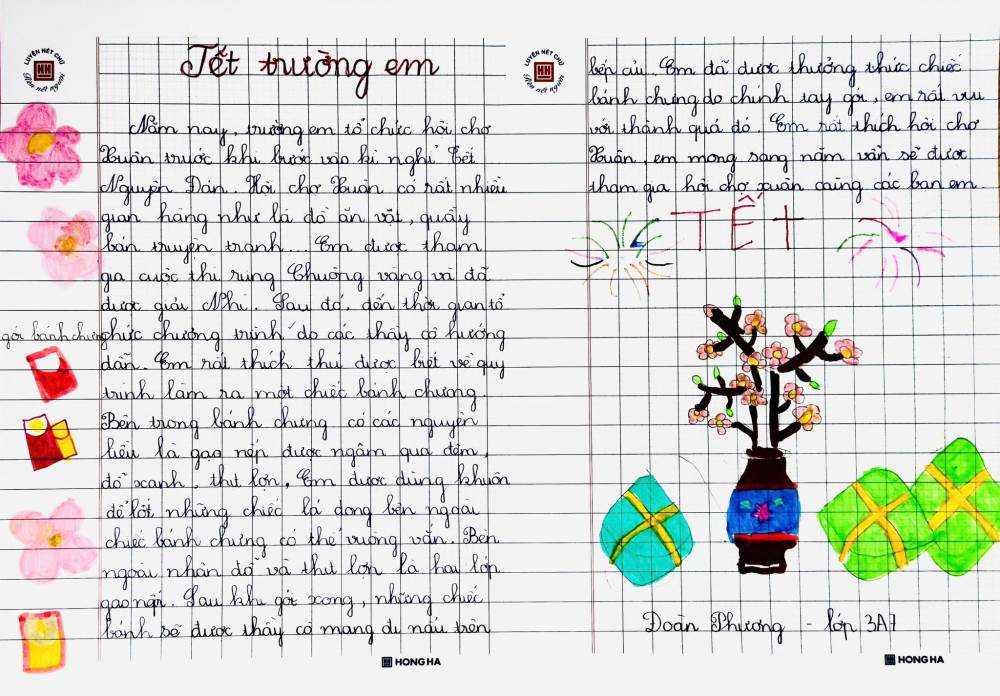 LUYỆN NÉT CHỮ
HH
Rèn nết người
Tết trường em
Năm nay, trường em tổ chức hội chợ
Xuân trước khi bước vào kì nghỉ Tết
Nguyên Đán. Hội chợ Xuân có rất nhiều
gian hàng như là đồ ăn vặt, quầy
bán truyện tranh... Em được tham
gia cuộc thi rung Chuông vàng và đã
được giải Nhì. Sau đó, đến thời gian tổ
gói bánh chưng
chức chương trình do các thầy cô hướng
dẫn. Em rất thích thú được biết về quy
trình làm ra một chiếc bánh chưng.
Bên trong bánh chưng có các nguyên
liệu là gạo nếp được ngâm qua đêm,
đỗ xanh, thịt lợn. Em được dùng khuôn
để lót những chiếc lá dong bên ngoài
chiếc bánh chưng có thể vuông vắn. Bên
ngoài nhân đỗ và thịt lợn là hai lớp
gạo nếp. Sau khi gói xong, những chiếc
bánh sẽ được thầy cô mang đi nấu trên
HONG HA
LUYỆN NÉT CHỮ
HH
Rèn nết người
bếp củi. Em đã được thưởng thức chiếc
bánh chưng do chính tay gói, em rất vui
với thành quả đó. Em rất thích hội chợ
Xuân, em mong sang năm vẫn sẽ được
tham gia hội chợ xuân cùng các bạn em.
TẾT
Đoàn Phương - lớp 3A7
HONG HA